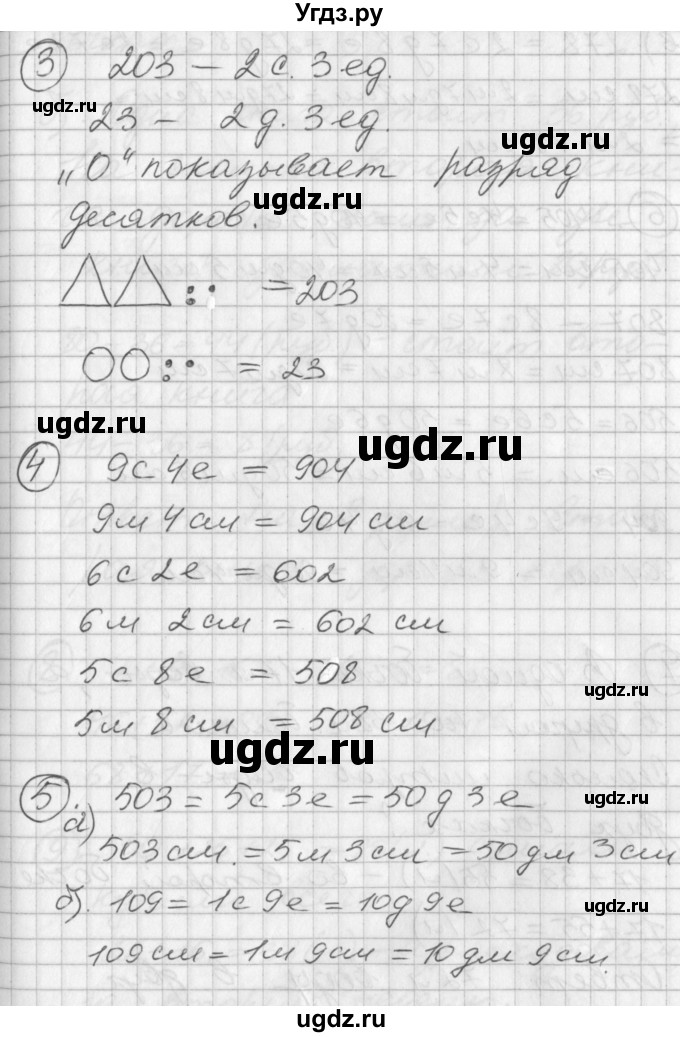 Угдз.ру
③ 203 – 2 с. 3 ед.
ugdz.ru
23 – 2 д. 3 ед.
„0“ показывает разряд
ugdz.ru
ugdz.ru
десятков.
= 203
= 23
ugdz.ru
ugdz.ru
④ 9с 4е = 904
9м 4см = 904 см
6с 2е = 602
6м 2см = 602 см
5с 8е = 508
ugdz.ru
5м 8см = 508 см
ugdz.ru
⑤. а) 503 = 5с 3е = 50д 3е
ugdz.ru
503 см. = 5м 3см = 50дм 3см
б). 109 = 1с 9е = 10д 9е
ugdz.ru
109 см = 1м 9см = 10дм 9см.
ugdz.ru